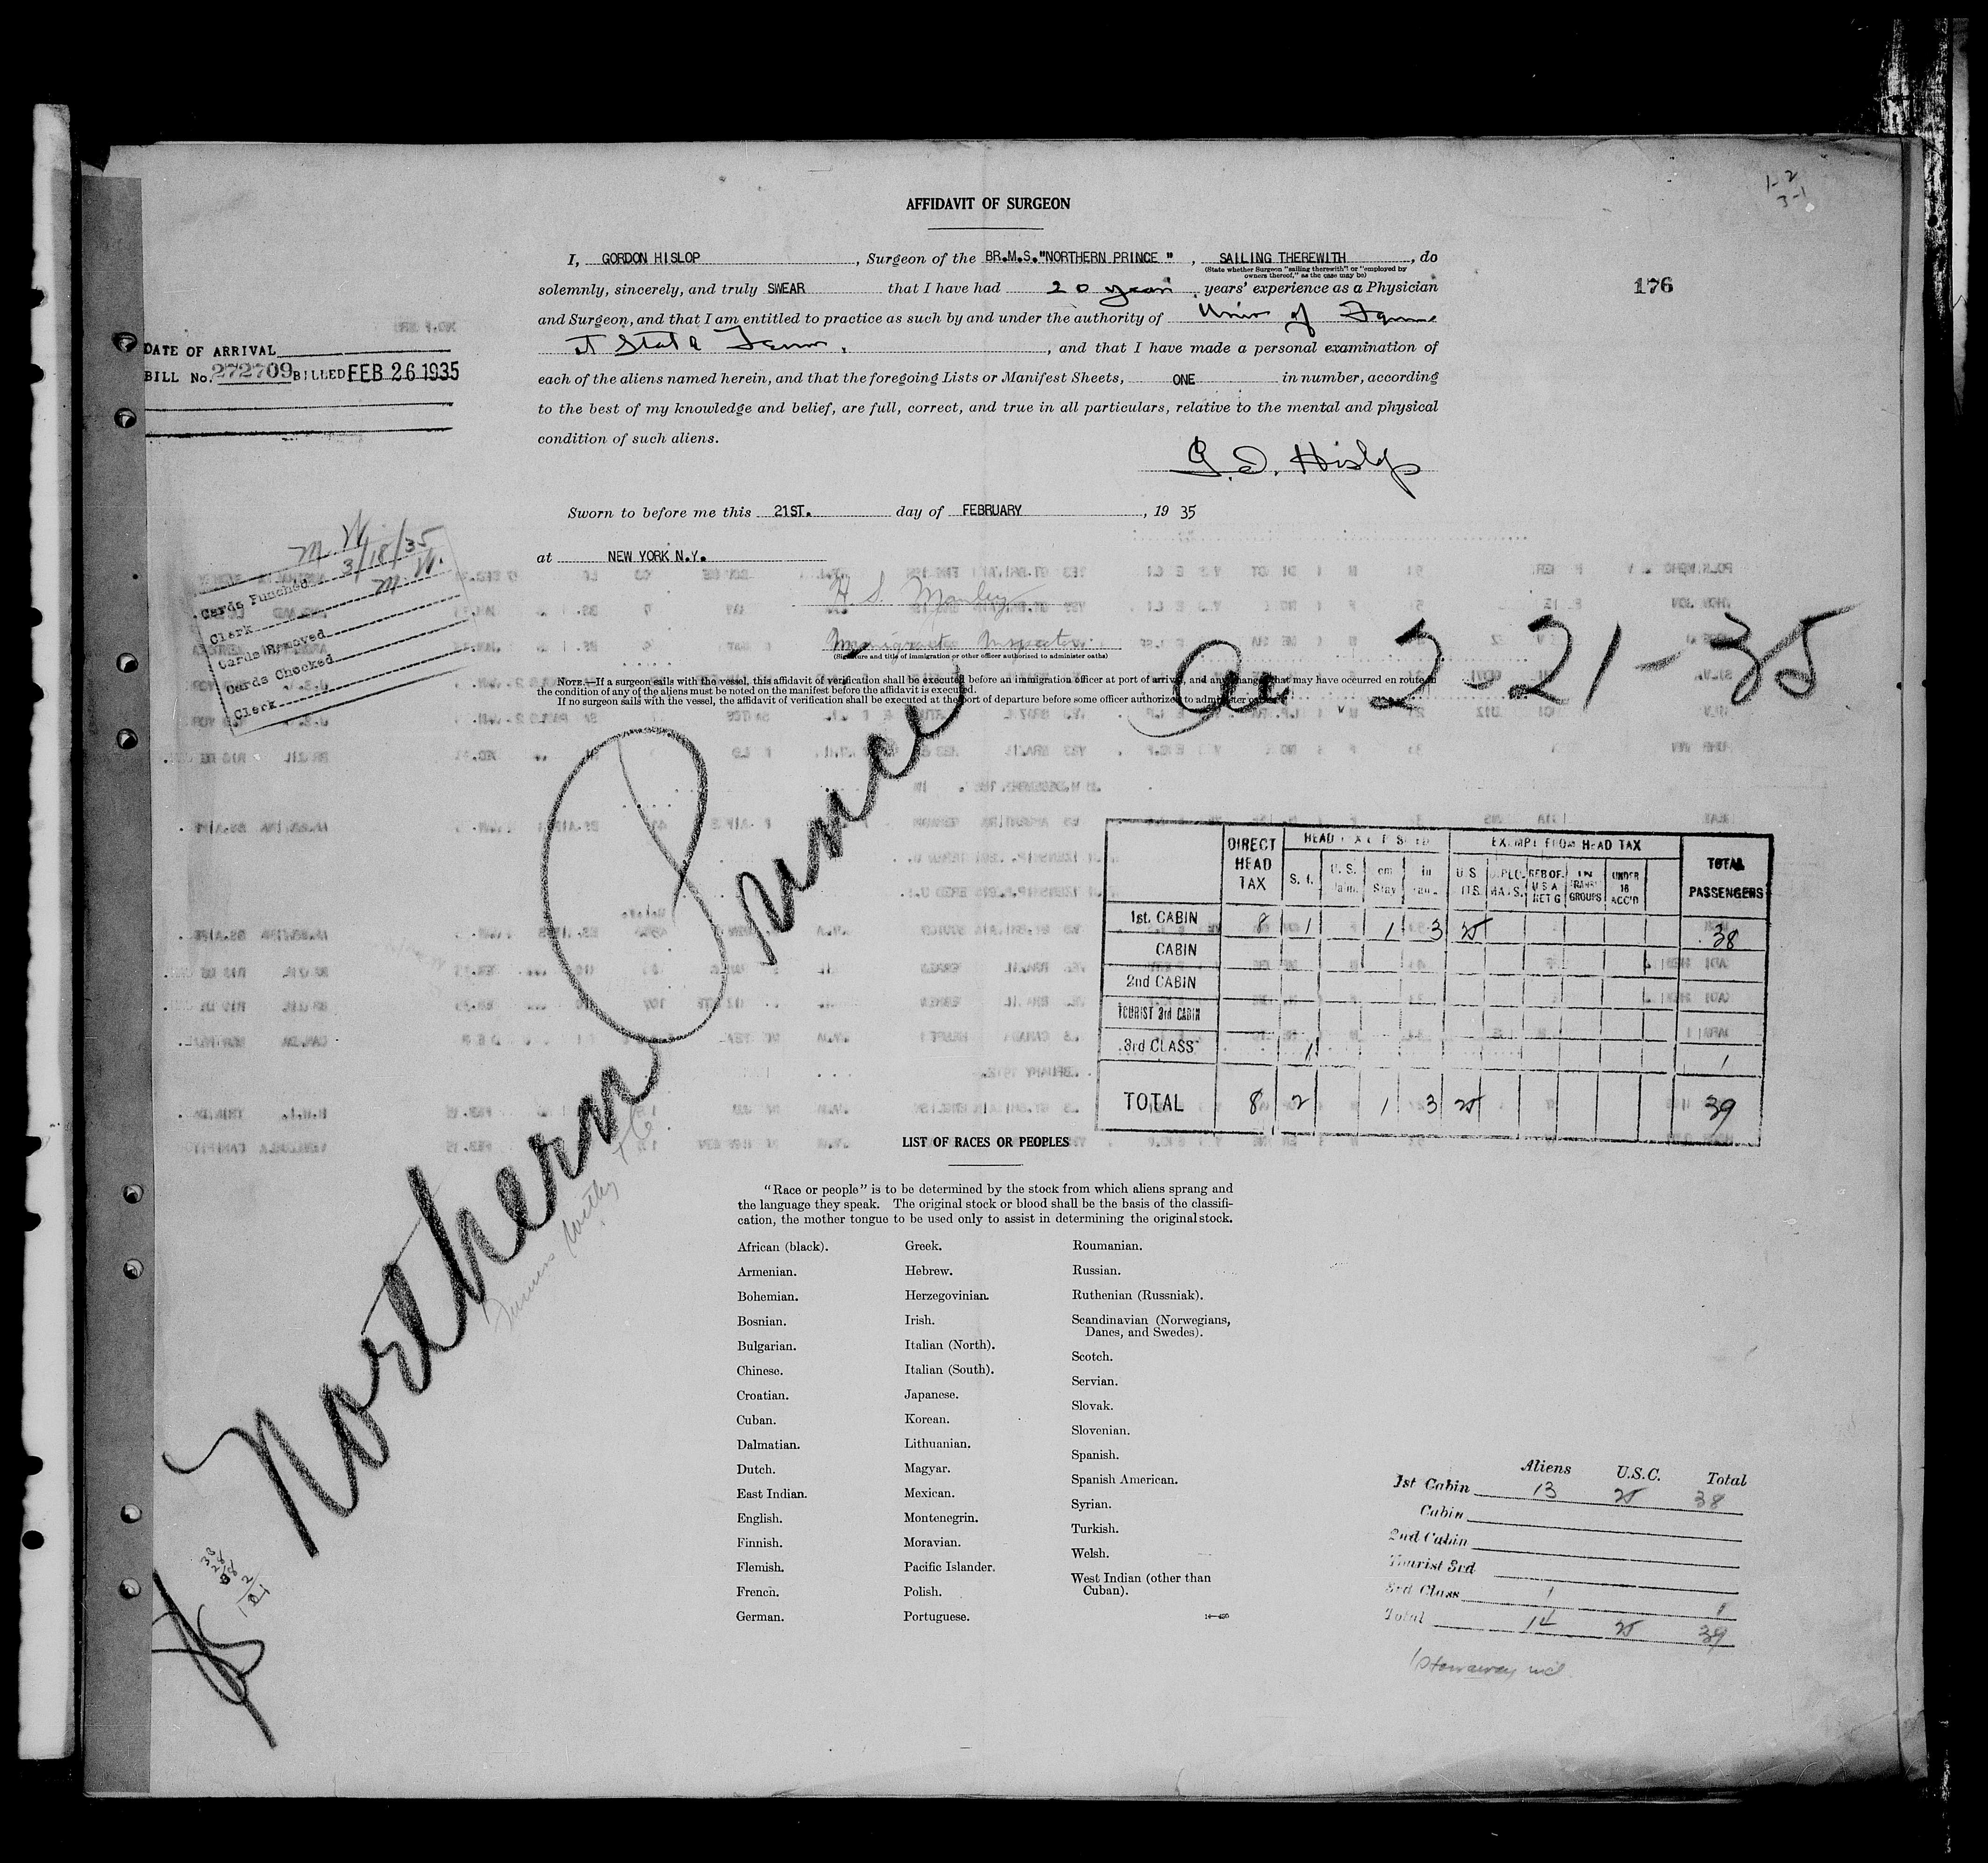 1-2
3-1
AFFIDAVIT OF SURGEON
I, GORDON HISLOP, Surgeon of the BR.M.S. "NORTHERN PRINCE", SAILING THEREWITH, do
(State whether Surgeon "sailing therewith" or "employed by
owners thereof," as the case may be)
176
solemnly, sincerely, and truly SWEAR that I have had 20 years years' experience as a Physician
and Surgeon, and that I am entitled to practice as such by and under the authority of Univ of
State, and that I have made a personal examination of
each of the aliens named herein, and that the foregoing Lists or Manifest Sheets, ONE in number, according
to the best of my knowledge and belief, are full, correct, and true in all particulars, relative to the mental and physical
condition of such aliens.
G. D. Hislop
DATE OF ARRIVAL
BILL No. 272709 BILLED FEB 26 1935
Sworn to before me this 21ST. day of FEBRUARY, 19 35
at NEW YORK N.Y.
H. S. Manley
Immigrant Inspector
(Signature and title of immigration or other officer authorized to administer oaths)
M. W.
Cards Punched 3/18/35
Clerk M. W.
Cards Removed
Cards Checked
Clerk
NOTE.—If a surgeon sails with the vessel, this affidavit of verification shall be executed before an immigration officer at port of arrival, and any changes that may have occurred en route in
the condition of any of the aliens must be noted on the manifest before the affidavit is executed.
If no surgeon sails with the vessel, the affidavit of verification shall be executed at the port of departure before some officer authorized to administer oaths.
2-21-35
Northern Prince
DIRECT HEAD TAX
EXEMPT FROM HEAD TAX
TOTAL PASSENGERS
S. I. U. S. U. S. UNDER 16 ACC'D
1st. CABIN 8 1 1 3 25 38
CABIN
2nd CABIN
TOURIST 3rd CABIN
3rd CLASS 1 1
TOTAL 8 2 1 3 25 39
LIST OF RACES OR PEOPLES
"Race or people" is to be determined by the stock from which aliens sprang and
the language they speak. The original stock or blood shall be the basis of the classifi-
cation, the mother tongue to be used only to assist in determining the original stock.
African (black).
Armenian.
Bohemian.
Bosnian.
Bulgarian.
Chinese.
Croatian.
Cuban.
Dalmatian.
Dutch.
East Indian.
English.
Finnish.
Flemish.
French.
German.
Greek.
Hebrew.
Herzegovinian.
Irish.
Italian (North).
Italian (South).
Japanese.
Korean.
Lithuanian.
Magyar.
Mexican.
Montenegrin.
Moravian.
Pacific Islander.
Polish.
Portuguese.
Roumanian.
Russian.
Ruthenian (Russniak).
Scandinavian (Norwegians,
Danes, and Swedes).
Scotch.
Servian.
Slovak.
Slovenian.
Spanish.
Spanish American.
Syrian.
Turkish.
Welsh.
West Indian (other than
Cuban).
Aliens U.S.C. Total
1st Cabin 13 25 38
Cabin
2nd Cabin
Tourist 3rd
3rd Class 1 1
Total 14 25 39
1 Stowaway incl.